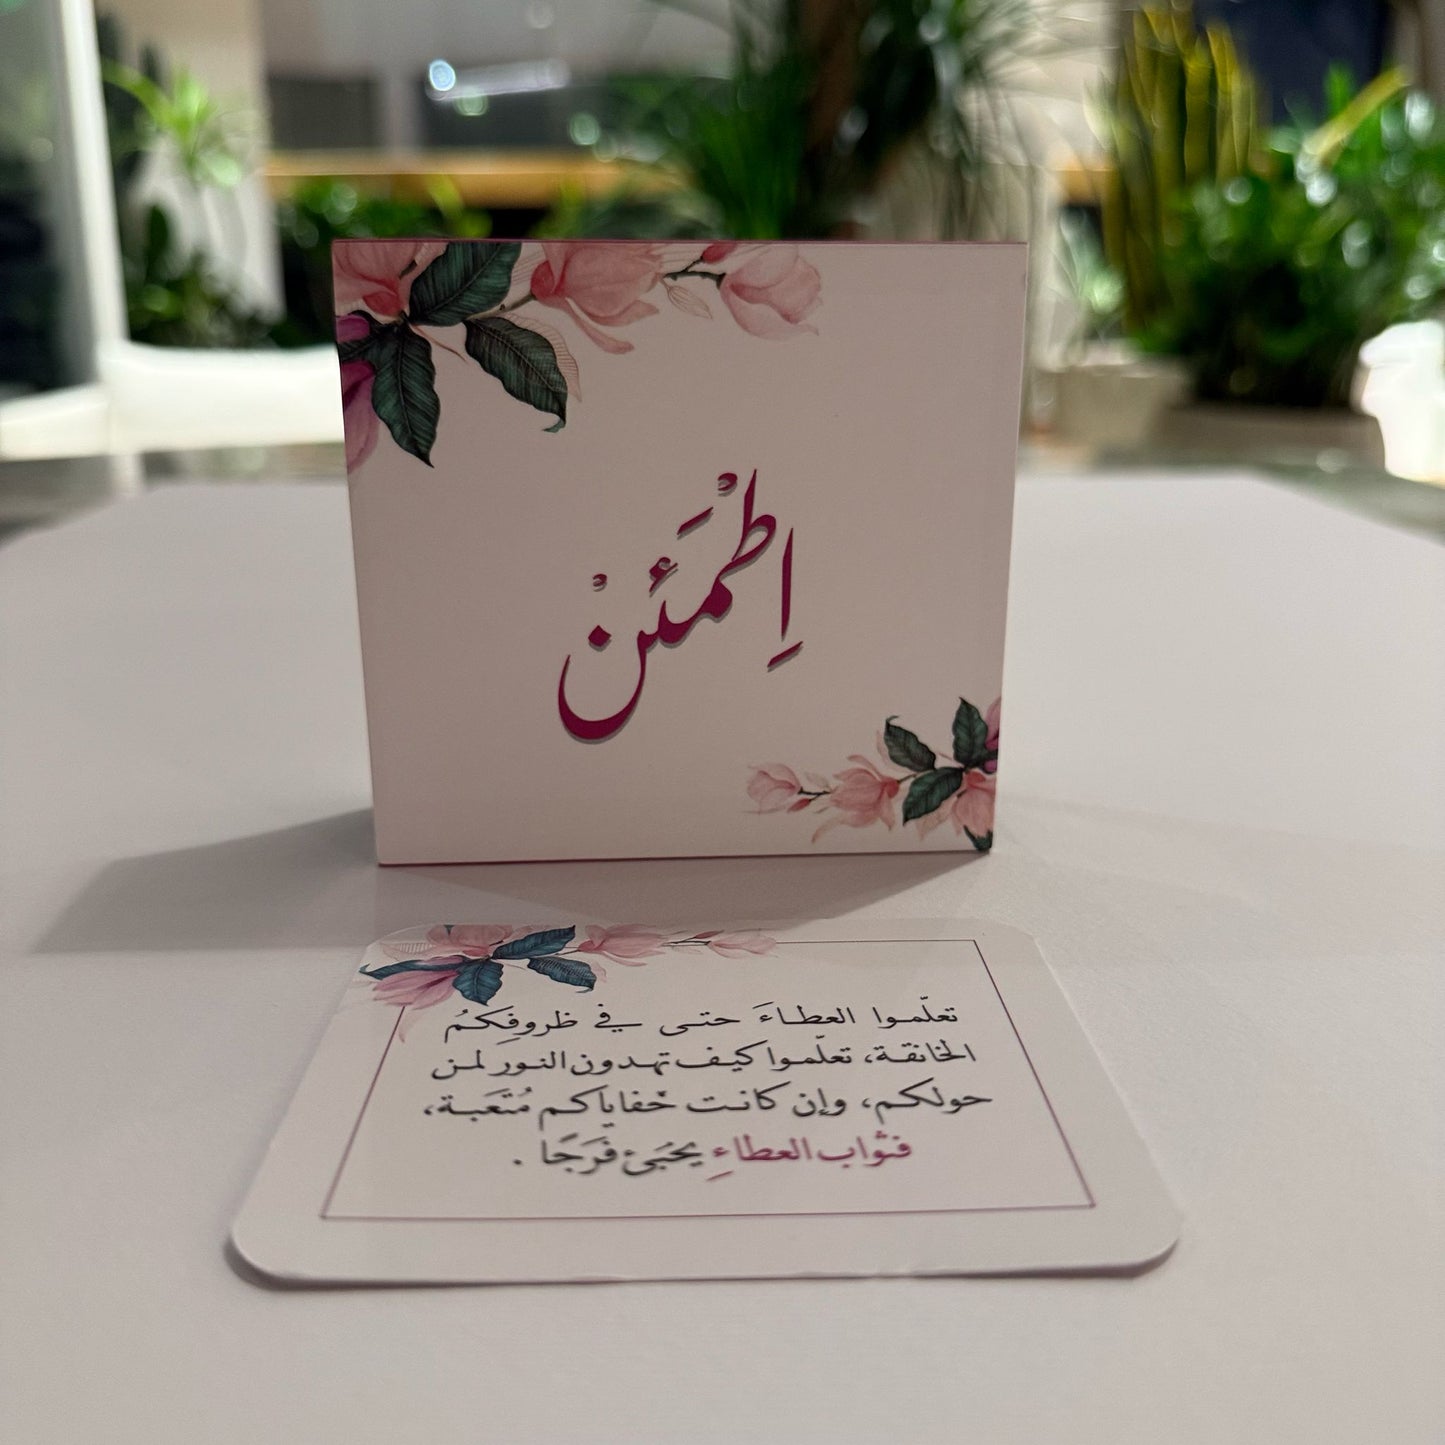 اِطْمَئِنْ
تعلّموا العطاءَ حتى في ظروفِكمُ
الخانقة، تعلّموا كيف تهدون النور لمن
حولكم، وإن كانت خفاياكم مُتعَبة،
فثواب العطاءِ يحيَئ فَرَجًا .